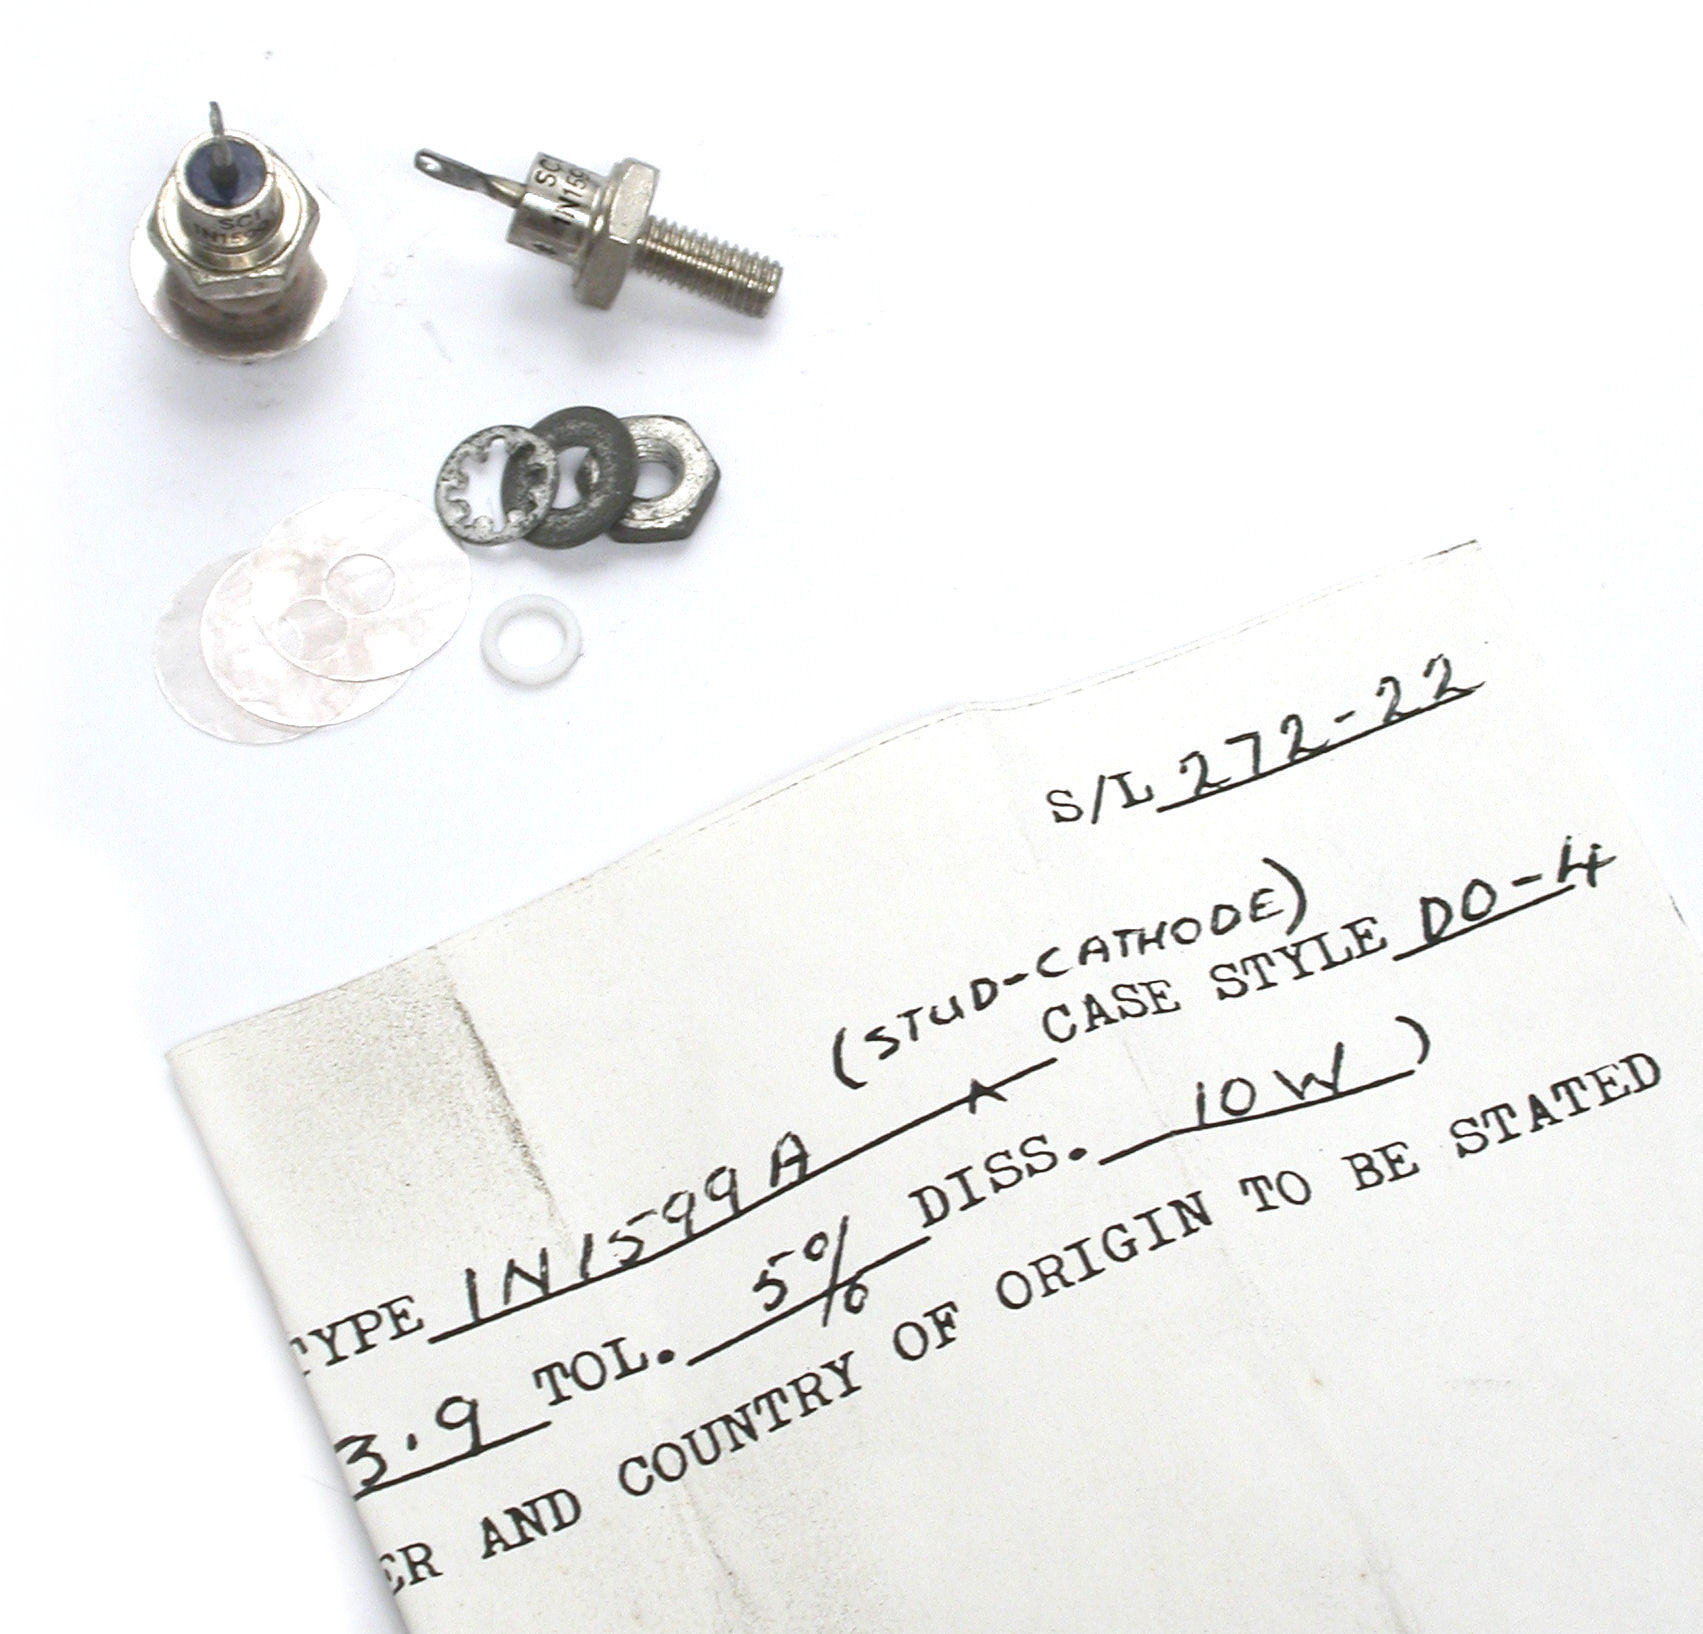 SCI
1N1599
SCI
1N159
S/L 272-22
(STUD-CATHODE)
TYPE 1N1599A ^ CASE STYLE DO-4
3.9 TOL. 5% DISS. 10W )
ER AND COUNTRY OF ORIGIN TO BE STATED